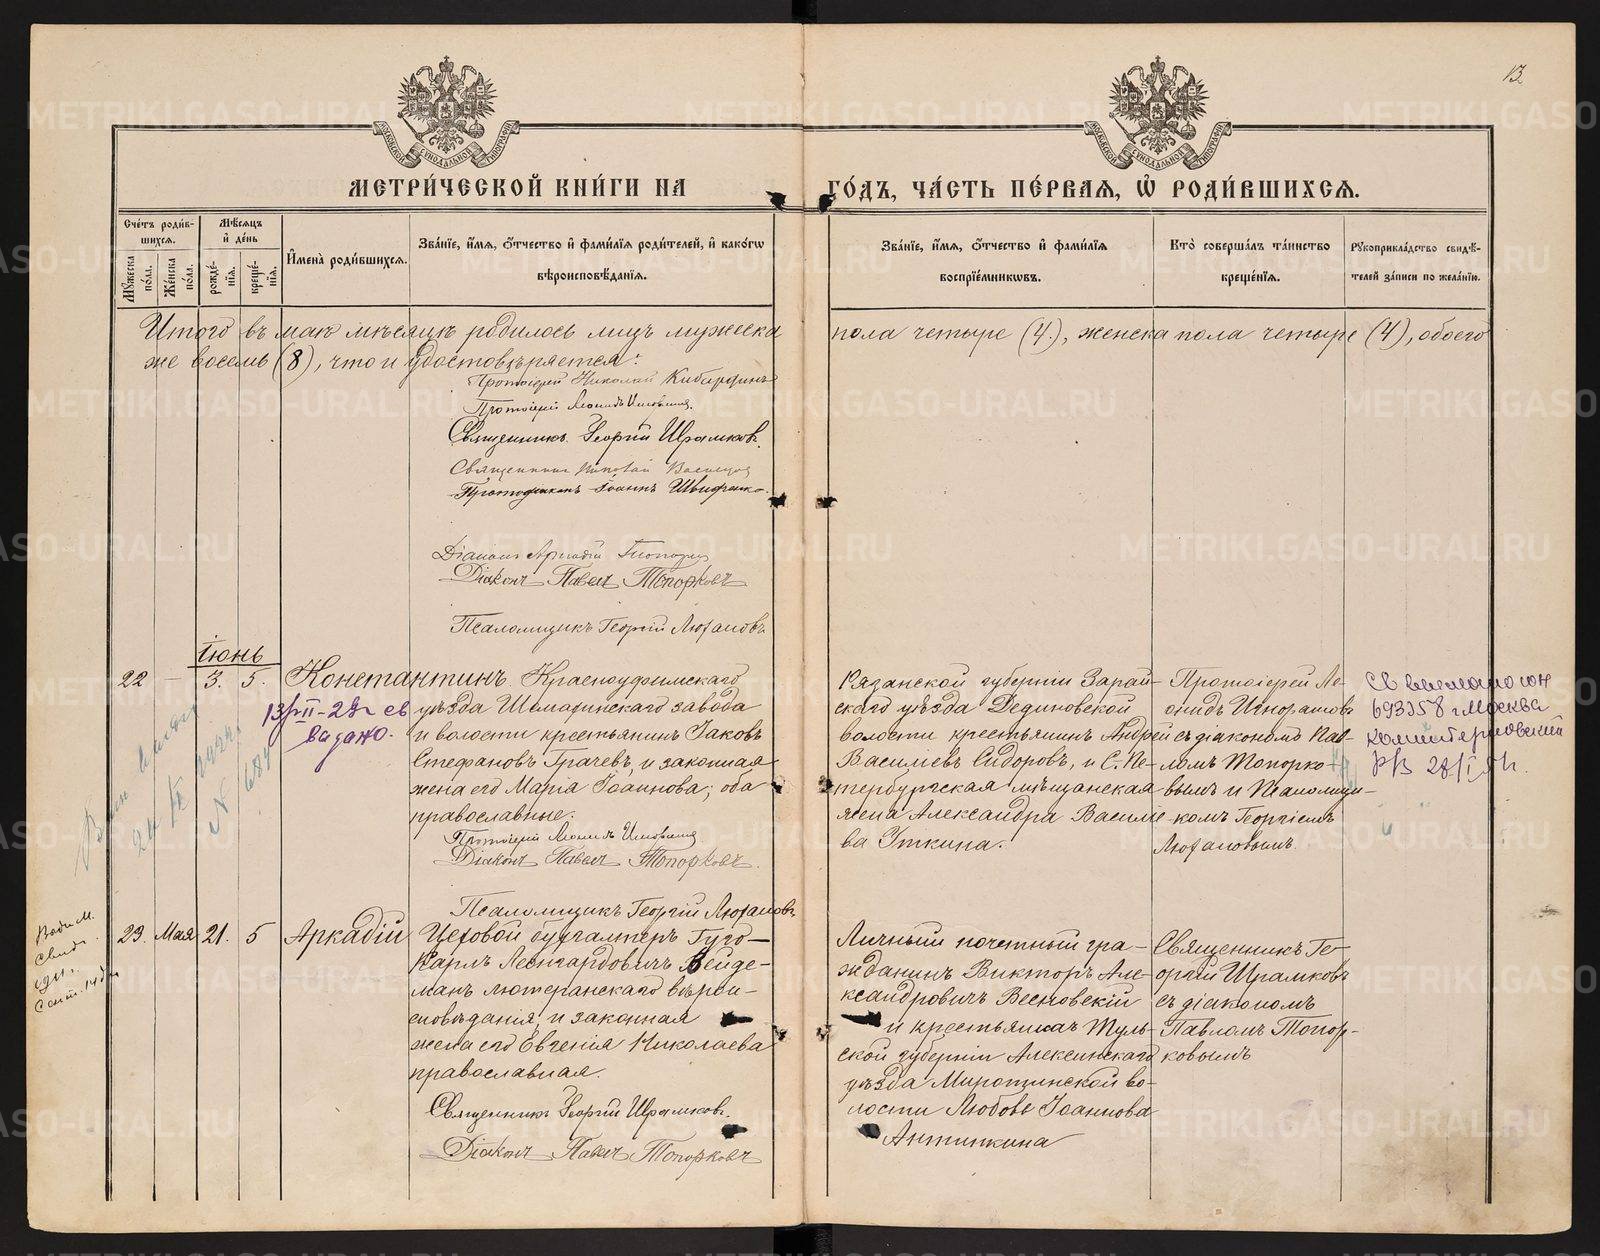 13
МОСКОВСКОЙ СѴНОДАЛЬНОЙ ТИПОГРАФІИ
МОСКОВСКОЙ СѴНОДАЛЬНОЙ ТИПОГРАФІИ
МЕТРИ́ЧЕСКОЙ КНИ́ГИ НА
ГО́ДЪ, ЧА́СТЬ ПЕ́РВАѦ, Ѡ҆ РОДИ́ВШИХСѦ.
Сче́тъ роди́в-
шихсѧ.
Мѣ́сѧцъ
и҆ де́нь
Мꙋ́жеска по́ла.
Же́нска по́ла.
рожде́-нїѧ.
креще́-нїѧ.
И҆мена̀ роди́вшихсѧ.
Зва́нїе, и҆́мѧ, ѻ҆́тчество и҆ фами́лїѧ роди́телей, и҆ како́гѡ
вѣроисповѣ́данїѧ.
Зва́нїе, и҆́мѧ, ѻ҆́тчество и҆ фами́лїѧ
воспрїе́мникѡвъ.
Кто̀ соверша́лъ та́инство
креще́нїѧ.
Рꙋкоприкла́дство свидѣ́-
телей за́писи по жела́нїю.
Итого въ маѣ мѣсяцѣ родилось лицъ мужеска
пола четыре (4), женска пола четыре (4), обоего
же восемь (8), что и удостовѣряется:
Протоіерей Николай
Протоіерей Леонидъ Игноратовъ
Священникъ Георгій Шрамковъ.
Священникъ Николай
Протодіаконъ Іоаннъ
Діаконъ Аркадій
Діаконъ Павелъ Топорковъ
Псаломщикъ Георгій
Іюнь
22 — 3. 5. Константинъ. Красноуфимскаго
уѣзда Шемахинскаго завода
и волости крестьянинъ Іаковъ
Стефановъ Грачевъ, и законная
жена его Марія Іоаннова; оба
православные.
Протоіерей Леонидъ Игноратовъ
Діаконъ Павелъ Топорковъ
Псаломщикъ Георгій
Рязанской губерніи Зарай-
скаго уѣзда Дединовской
волости крестьянинъ Андрей
Василіевъ Сидоровъ, и С. Пе-
тербургская мѣщанская
жена Александра Василіе-
ва Уткина.
Протоіерей Ле-
онидъ Игноратовъ
съ діакономъ Пав-
ломъ Топорко-
вымъ и Псаломщи-
комъ Георгіемъ
693358 г Москва
23. Мая 21. 5 Аркадій Цеховой бухгалтеръ Гуго-
Карлъ Леонгардовичъ Вейде-
манъ лютеранскаго вѣрои-
сповѣданія, и законная
жена его Евгенія Николаева
православная.
Священникъ Георгій Шрамковъ.
Діаконъ Павелъ Топорковъ
Личный почетный гра-
жданинъ Викторъ Але-
ксандровичъ Весновскій
и крестьянка Туль-
ской губерніи Алексинскаго
уѣзда Миротинской во-
лости Любовь Іоаннова
Антипкина
Священникъ Ге-
оргій Шрамковъ
съ діакономъ
Павломъ Топор-
ковымъ
METRIKI.GASO-URAL.RU